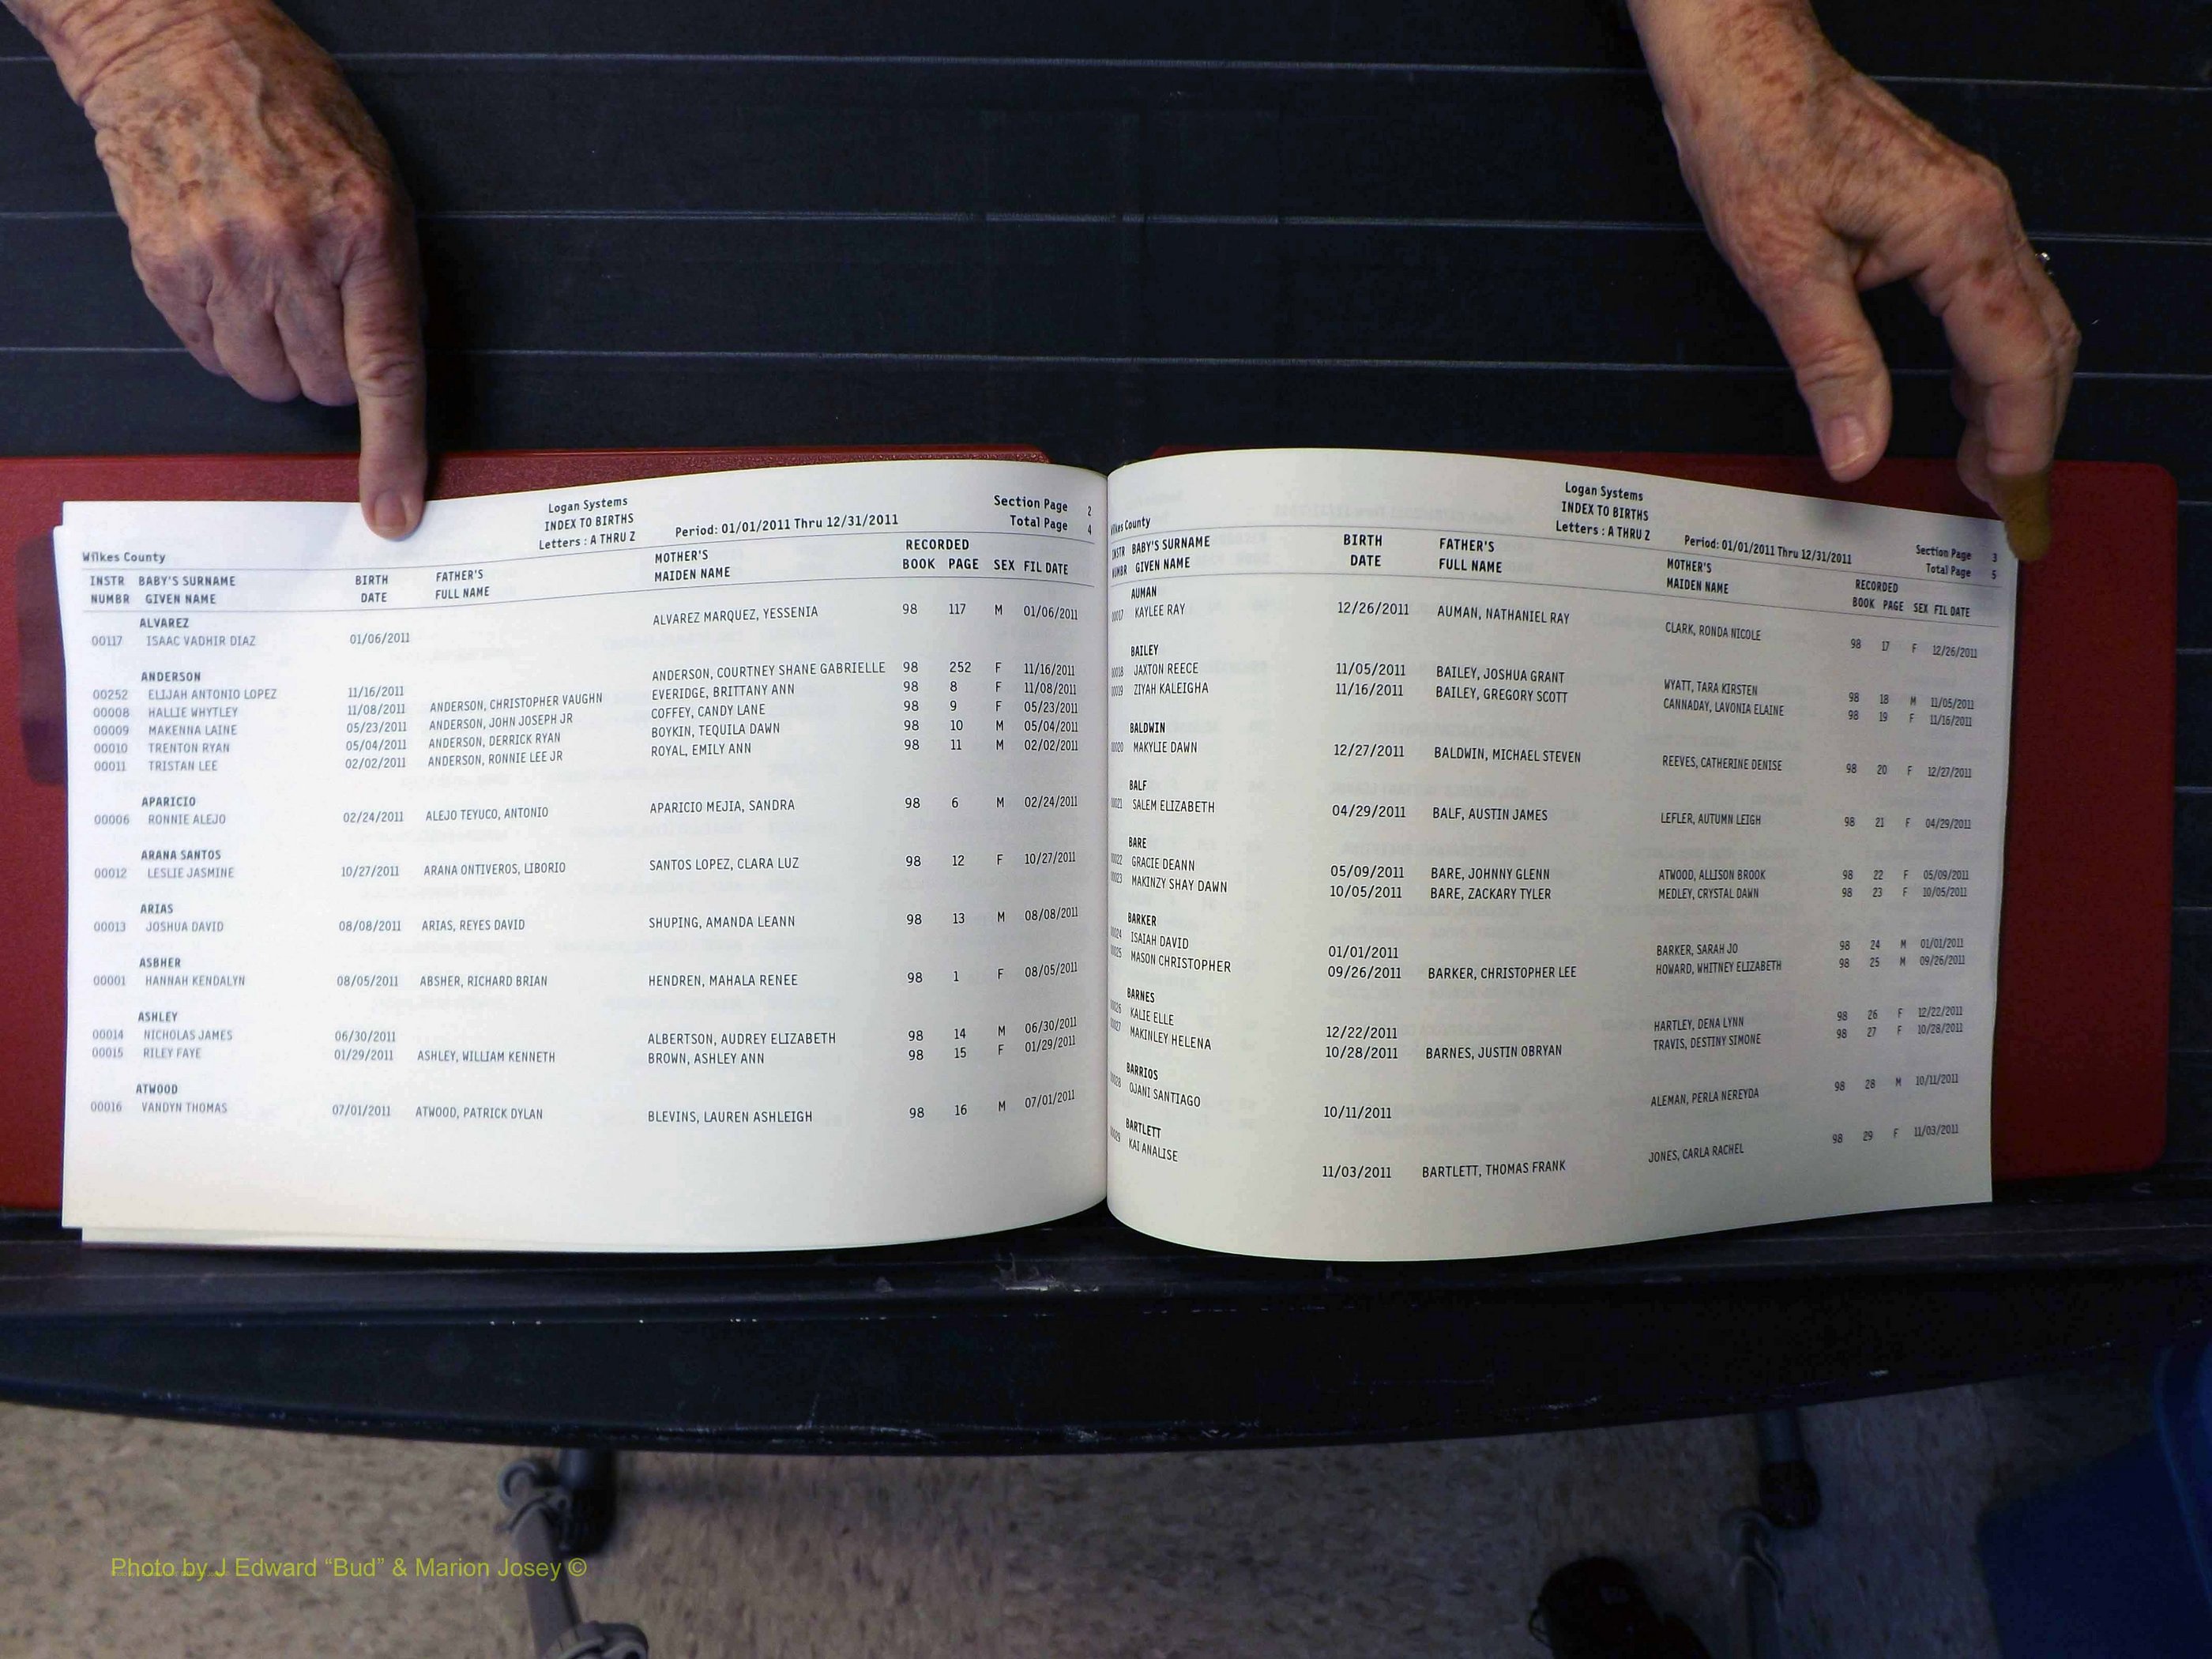 Logan Systems
INDEX TO BIRTHS
Letters : A THRU Z
Period: 01/01/2011 Thru 12/31/2011
Section Page 2
Total Page 4
Wilkes County
INSTR BABY'S SURNAME BIRTH FATHER'S MOTHER'S RECORDED
NUMBR GIVEN NAME DATE FULL NAME MAIDEN NAME BOOK PAGE SEX FIL DATE
ALVAREZ
00117 ISAAC VADHIR DIAZ 01/06/2011 ALVAREZ MARQUEZ, YESSENIA 98 117 M 01/06/2011
ANDERSON
00252 ELIJAH ANTONIO LOPEZ 11/16/2011 ANDERSON, COURTNEY SHANE GABRIELLE 98 252 F 11/16/2011
00008 HALLIE WHYTLEY 11/08/2011 ANDERSON, CHRISTOPHER VAUGHN EVERIDGE, BRITTANY ANN 98 8 F 11/08/2011
00009 MAKENNA LAINE 05/23/2011 ANDERSON, JOHN JOSEPH JR COFFEY, CANDY LANE 98 9 F 05/23/2011
00010 TRENTON RYAN 05/04/2011 ANDERSON, DERRICK RYAN BOYKIN, TEQUILA DAWN 98 10 M 05/04/2011
00011 TRISTAN LEE 02/02/2011 ANDERSON, RONNIE LEE JR ROYAL, EMILY ANN 98 11 M 02/02/2011
APARICIO
00006 RONNIE ALEJO 02/24/2011 ALEJO TEYUCO, ANTONIO APARICIO MEJIA, SANDRA 98 6 M 02/24/2011
ARANA SANTOS
00012 LESLIE JASMINE 10/27/2011 ARANA ONTIVEROS, LIBORIO SANTOS LOPEZ, CLARA LUZ 98 12 F 10/27/2011
ARIAS
00013 JOSHUA DAVID 08/08/2011 ARIAS, REYES DAVID SHUPING, AMANDA LEANN 98 13 M 08/08/2011
ASBHER
00001 HANNAH KENDALYN 08/05/2011 ABSHER, RICHARD BRIAN HENDREN, MAHALA RENEE 98 1 F 08/05/2011
ASHLEY
00014 NICHOLAS JAMES 06/30/2011 ALBERTSON, AUDREY ELIZABETH 98 14 M 06/30/2011
00015 RILEY FAYE 01/29/2011 ASHLEY, WILLIAM KENNETH BROWN, ASHLEY ANN 98 15 F 01/29/2011
ATWOOD
00016 VANDYN THOMAS 07/01/2011 ATWOOD, PATRICK DYLAN BLEVINS, LAUREN ASHLEIGH 98 16 M 07/01/2011
Logan Systems
INDEX TO BIRTHS
Letters : A THRU Z
Period: 01/01/2011 Thru 12/31/2011
Section Page 3
Total Page 5
Wilkes County
INSTR BABY'S SURNAME BIRTH FATHER'S MOTHER'S RECORDED
NUMBR GIVEN NAME DATE FULL NAME MAIDEN NAME BOOK PAGE SEX FIL DATE
AUMAN
00017 KAYLEE RAY 12/26/2011 AUMAN, NATHANIEL RAY CLARK, RONDA NICOLE 98 17 F 12/26/2011
BAILEY
00018 JAXTON REECE 11/05/2011 BAILEY, JOSHUA GRANT WYATT, TARA KIRSTEN 98 18 M 11/05/2011
00019 ZIYAH KALEIGHA 11/16/2011 BAILEY, GREGORY SCOTT CANNADAY, LAVONIA ELAINE 98 19 F 11/16/2011
BALDWIN
00020 MAKYLIE DAWN 12/27/2011 BALDWIN, MICHAEL STEVEN REEVES, CATHERINE DENISE 98 20 F 12/27/2011
BALF
00021 SALEM ELIZABETH 04/29/2011 BALF, AUSTIN JAMES LEFLER, AUTUMN LEIGH 98 21 F 04/29/2011
BARE
00022 GRACIE DEANN 05/09/2011 BARE, JOHNNY GLENN ATWOOD, ALLISON BROOK 98 22 F 05/09/2011
00023 MAKINZY SHAY DAWN 10/05/2011 BARE, ZACKARY TYLER MEDLEY, CRYSTAL DAWN 98 23 F 10/05/2011
BARKER
00024 ISAIAH DAVID 01/01/2011 BARKER, SARAH JO 98 24 M 01/01/2011
00025 MASON CHRISTOPHER 09/26/2011 BARKER, CHRISTOPHER LEE HOWARD, WHITNEY ELIZABETH 98 25 M 09/26/2011
BARNES
00026 KALIE ELLE 12/22/2011 HARTLEY, DENA LYNN 98 26 F 12/22/2011
00027 MAKINLEY HELENA 10/28/2011 BARNES, JUSTIN OBRYAN TRAVIS, DESTINY SIMONE 98 27 F 10/28/2011
BARRIOS
00028 OJANI SANTIAGO 10/11/2011 ALEMAN, PERLA NEREYDA 98 28 M 10/11/2011
BARTLETT
00029 KAI ANALISE 11/03/2011 BARTLETT, THOMAS FRANK JONES, CARLA RACHEL 98 29 F 11/03/2011
Photo by J Edward “Bud” & Marion Josey ©